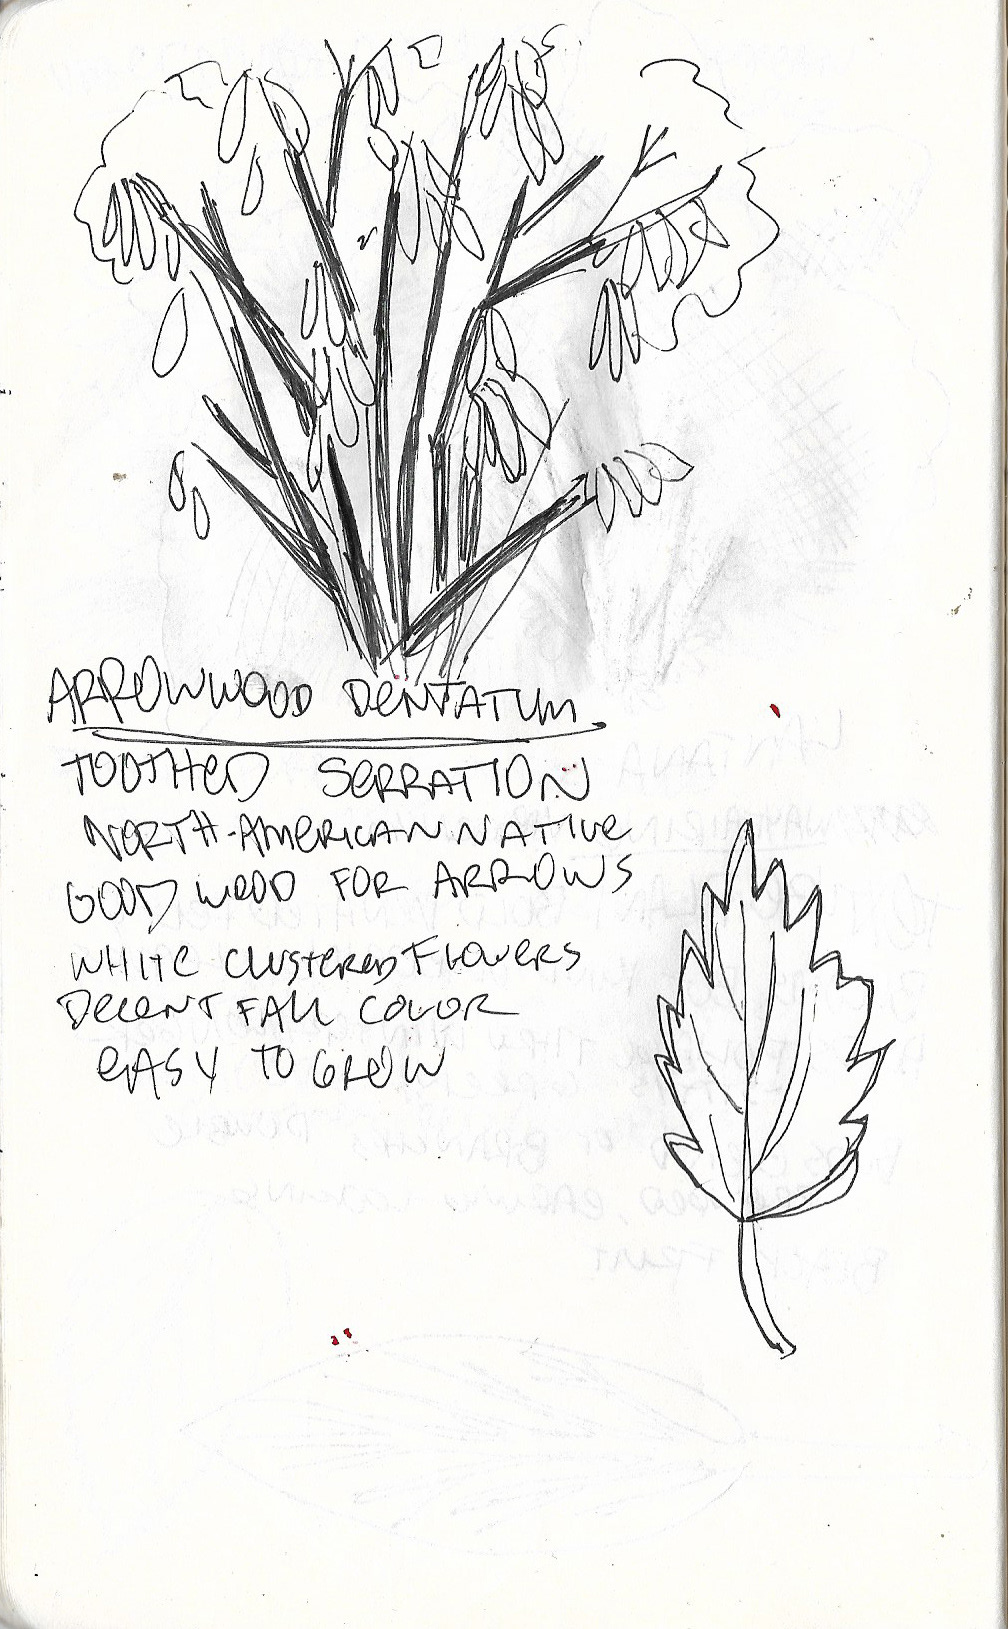 ARROWWOOD DENTATUM
TOOTHED SERRATION
NORTH-AMERICAN NATIVE
GOOD WOOD FOR ARROWS
WHITE CLUSTERED FLOWERS
DECENT FALL COLOR
EASY TO GROW